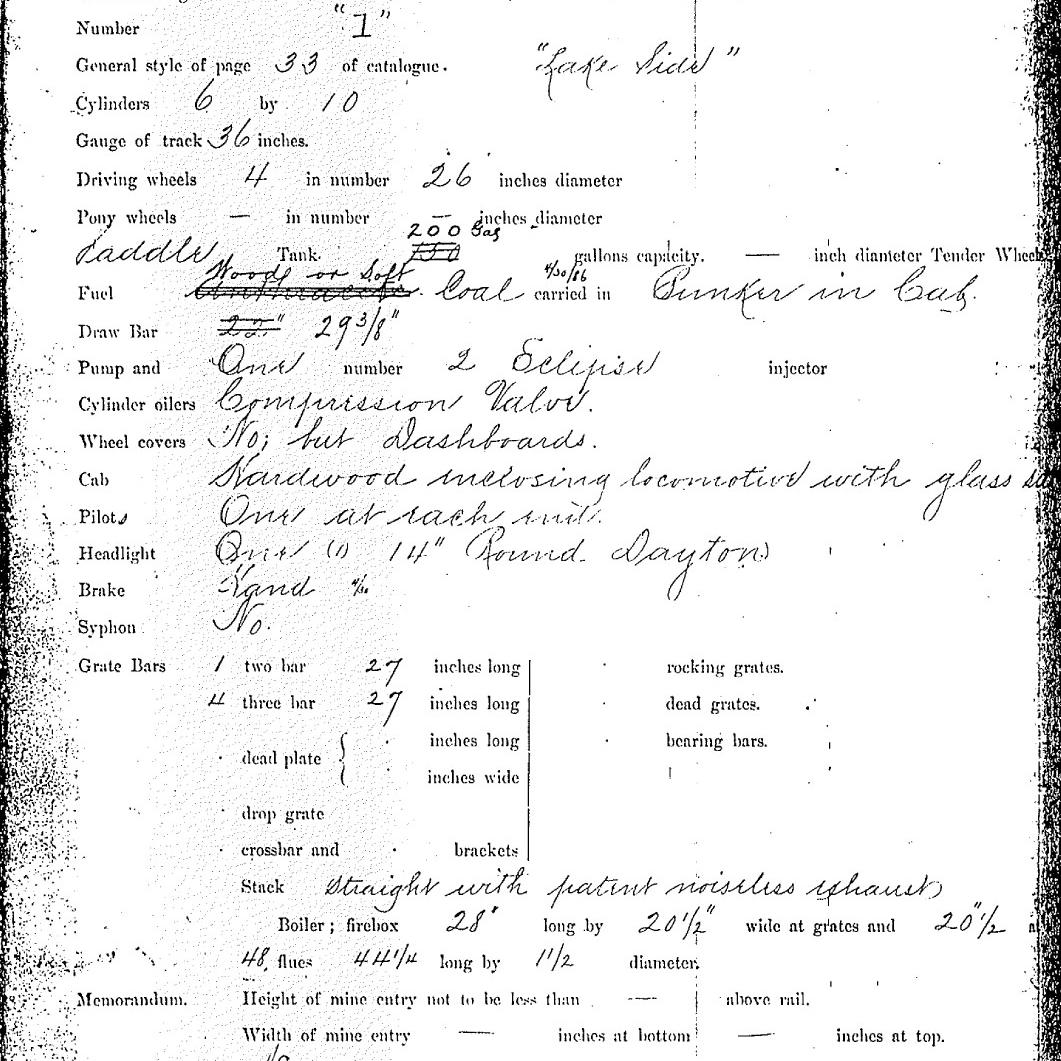 Number "1"
General style of page 33 of catalogue. "Lake Side"
Cylinders 6 by 10
Gauge of track 36 inches.
Driving wheels 4 in number 26 inches diameter
Pony wheels — in number — inches diameter
200 Gas
Saddle Tank 150 gallons capacity. — inch diameter Tender Wheel
Wood or Soft 4/30/86
Fuel Anthracite Coal carried in Bunker in Cab.
Draw Bar 22" 29 3/8"
Pump and One number 2 Eclipse injector
Cylinder oilers Compression Valve.
Wheel covers No; but Dashboards.
Cab Hardwood inclosing locomotive with glass
Pilots One at each end.
Headlight One (1) 14" Round Dayton
Brake Hand 4/30
Syphon No.
Grate Bars 1 two bar 27 inches long rocking grates.
4 three bar 27 inches long dead grates.
dead plate { inches long bearing bars.
inches wide
drop grate
crossbar and brackets
Stack Straight with patent noiseless exhaust
Boiler; firebox 28" long by 20 1/2" wide at grates and 20 1/2"
48 flues 44 1/4 long by 1 1/2 diameter.
Memorandum. Height of mine entry not to be less than — above rail.
Width of mine entry — inches at bottom — inches at top.